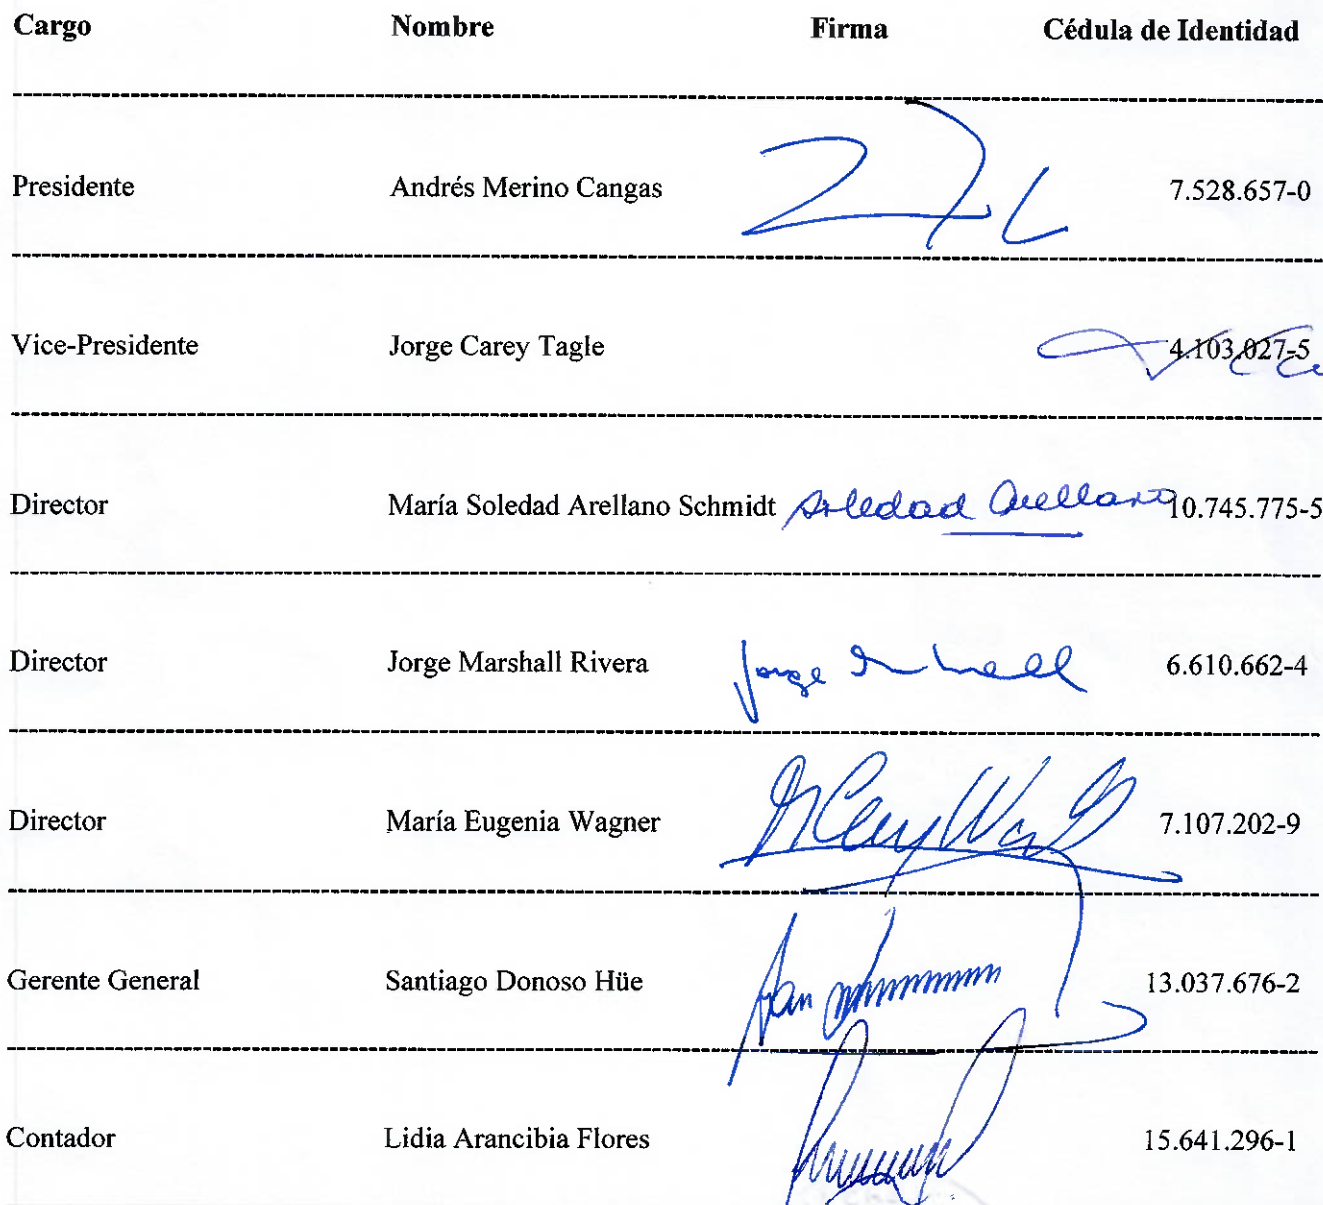 Cargo Nombre Firma Cédula de Identidad
Presidente Andrés Merino Cangas 7.528.657-0
Vice-Presidente Jorge Carey Tagle 4.103.027-5
Director María Soledad Arellano Schmidt Soledad Arellano 10.745.775-5
Director Jorge Marshall Rivera Jorge 6.610.662-4
Director María Eugenia Wagner 7.107.202-9
Gerente General Santiago Donoso Hüe 13.037.676-2
Contador Lidia Arancibia Flores 15.641.296-1